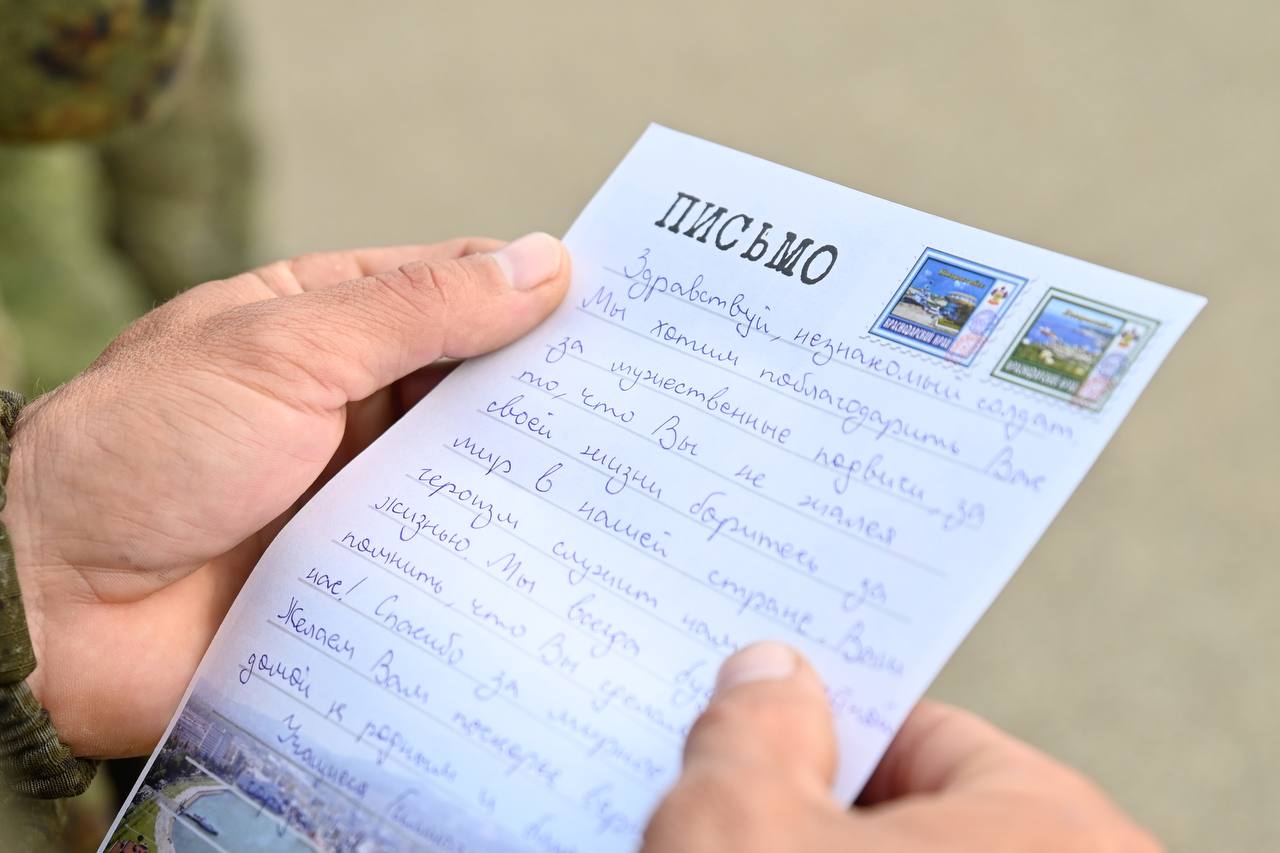 ПИСЬМО
КРАСНОДАРСКИЙ КРАЙ
КРАСНОДАРСКИЙ КРАЙ
Здравствуй, незнакомый солдат
Мы хотим поблагодарить Вас
за мужественные подвиги, за
то, что Вы не жалея
своей жизни боритесь за
мир в нашей стране. Ваш
героизм служит нам
жизнью. Мы всегда
помнить, что Вы сделали
нас! Спасибо за мирное
Желаем Вам поскорее
домой к родным и
Учащиеся